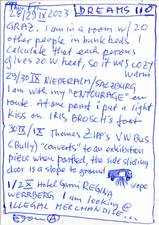 28/29 IX 2023 DREAMS 110
GRAZ. I am in a room w/ 20
other people in bunk beds. I
calculate that each persons
gives 20 W heat, so it was cozy
warm
29/30 IX NIEDERALM/SALZBURG
I am with my "ENTOURAGE" en
route. At one point I put a light
kiss on IRIS BROSCH's foot
30 IX/1 X Thomas Zipp's VW Bus
(Bully) "converts" to an exhibition
piece when parked, the side sliding
door is a slope to ground
slope
1/2 X Hotel Garni REGINA
WERRBERG I am looking @
ILLEGAL MERCHANDISE...